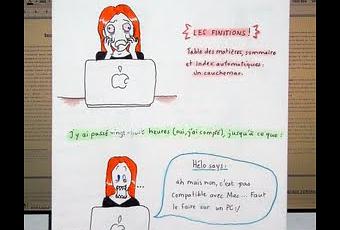 LES FINITIONS !
Table des matières, sommaire
et index automatiques :
un cauchemar.
J'y ai passé vingt-huit heures (oui, j'ai compté), jusqu'à ce que :
...
Hélo says :
ah mais non, c'est pas
compatible avec Mac... Faut
le faire sur un PC :/